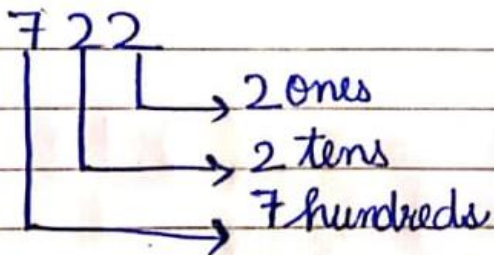 722
2 ones
2 tens
7 hundreds